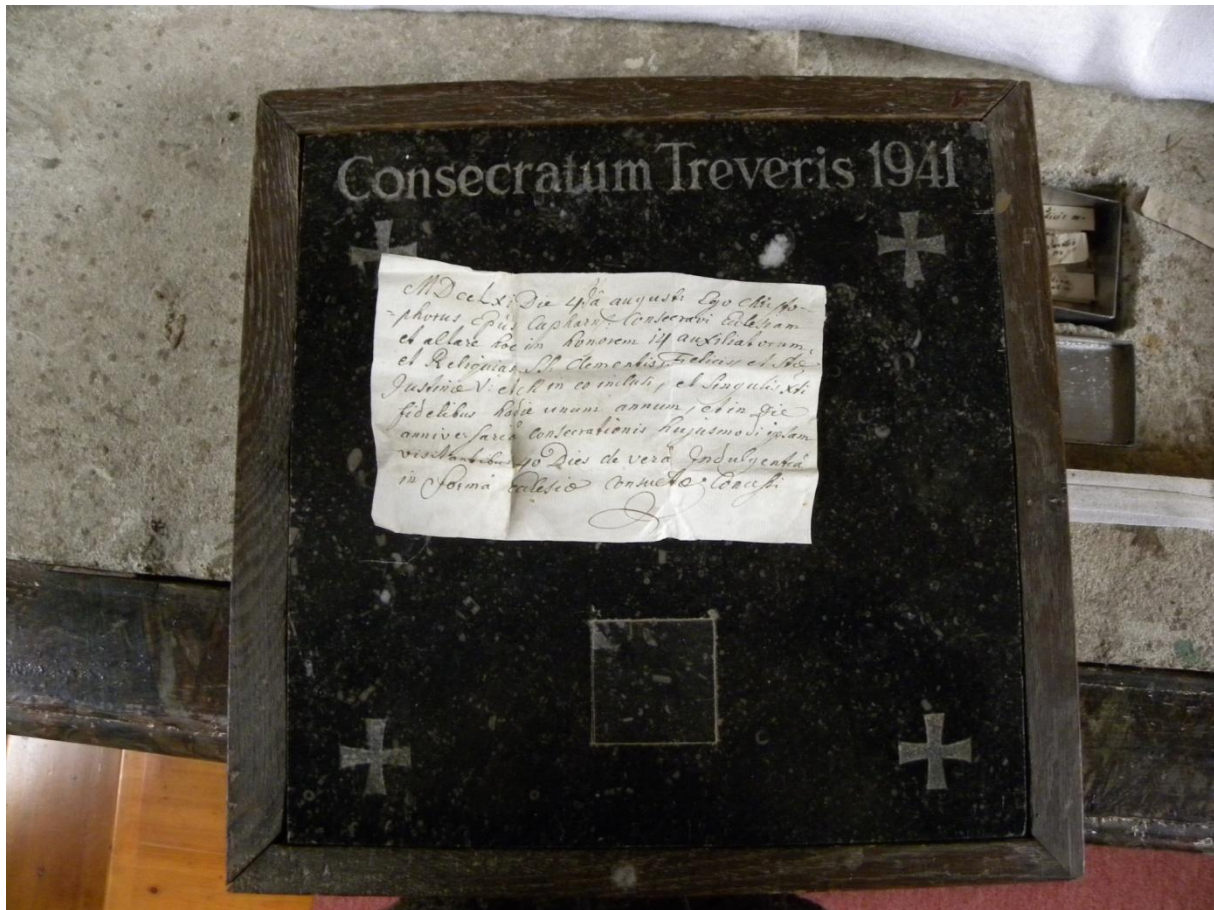 Consecratum Treveris 1941
MDccLxi Die 4tâ augusti Ego Christo-
-phorus Epus Capharn: Consecravi Eclesiam
et altare hoc in honorem 14 auxiliatorum,
et Reliquias SS. Clementis, Felicis, et
Justinæ V: et in eo inclusi, et Singulis xti
fidelibus hodie unum annum, et in Die
anniversariâ Consecrationis hujusmodi ipsam
visitantibus 40 Dies de verâ Indulgentiâ
in formâ Eclesiæ Consuetâ Concessi